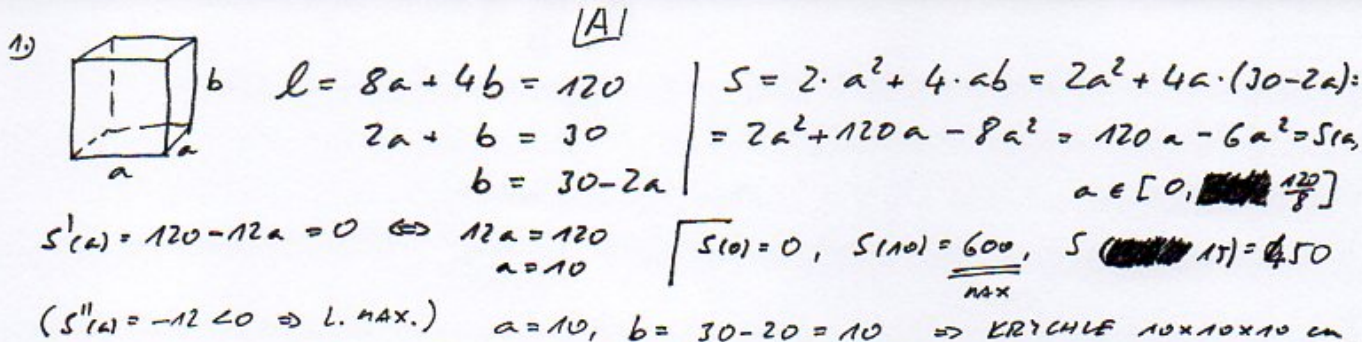 A
1.)
b
a
a
l = 8a + 4b = 120
2a + b = 30
b = 30-2a
S = 2· a² + 4· ab = 2a² + 4a·(30-2a) =
= 2a² + 120a - 8a² = 120a - 6a² = S(a)
a ∈ [0, 120/8]
S'(a) = 120-12a = 0 ⇔ 12a = 120
a = 10
S(0) = 0, S(10) = 600, S(15) = 450
MAX
(S''(a) = -12 < 0 ⇒ L. MAX.) a = 10, b = 30-20 = 10 ⇒ KRYCHLE 10x10x10 cm